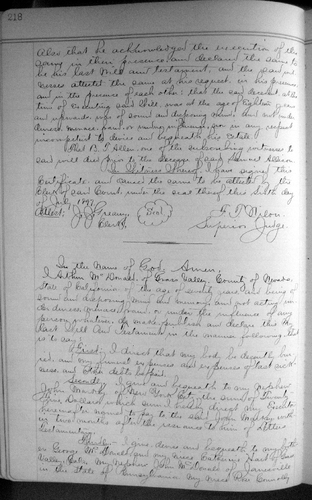 218
also that he acknowledged the execution of the
same in their presence and declared the same to
be his last Will and testament, and the said wit-
nesses attested the same at his request, in his presence
and in the presence of each other; that the said decedent at the
time of executing said Will, was of the age of eighteen years
and upwards, was of sound and disposing mind, and not under
duress, menace, fraud, or undue influence, nor in any respect
incompetent to devise and bequeath his Estate.
That B. J. Allen, one of the subscribing witnesses to
said will died prior to the decease of said
In Witness Whereof, I have signed this
Certificate, and caused the same to be attested by the
Clerk of said Court, under the seal thereof this
of July 1897.
Attest:
Clerk.
Seal
Superior Judge.
In the Name of God, Amen.
I, McDonald, of Grass Valley, County of Nevada,
State of California, of the age of years, and being of
sound and disposing mind and memory, and not acting un-
der duress, menace, fraud, or under the influence of any
person whatever, do make, publish and declare this my
last Will and Testament in the manner following, that
is to say:
First: I direct that my body be decently bur-
ied, and my funeral expenses and expenses of last sick-
ness and other debts be paid.
Secondly: I give and bequeath to my nephew
John of New York City, the sum of Twenty
five Dollars, which sum I hereby direct my Executor
hereinafter named to pay to the said John
in two months after the issuance to him of letters
testamentary.
Thirdly: I give, devise and bequeath to my
George McDonald, and my niece Catherine of Grass
Valley, Cal., my nephew John McDonald of
in the State of Pennsylvania, my niece Rose Connolly